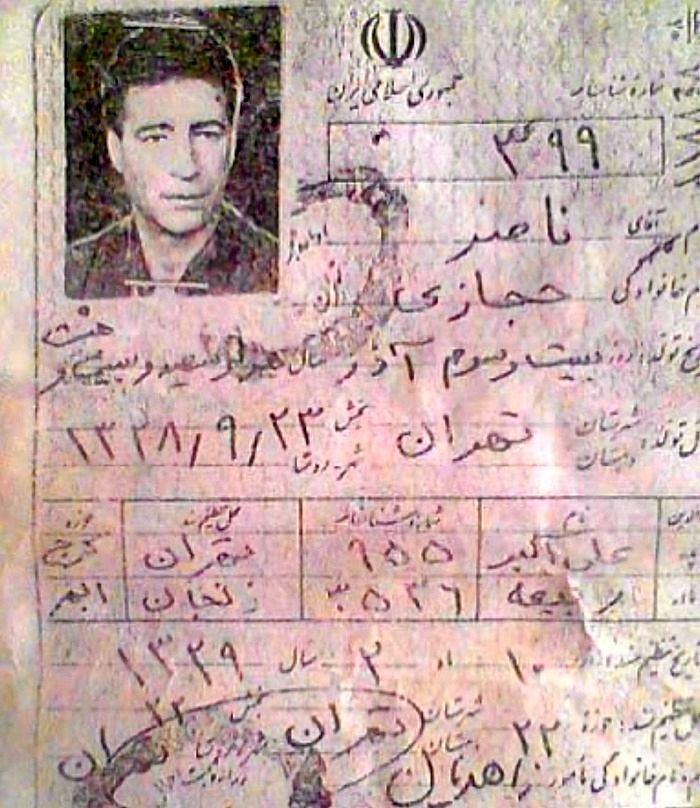 جمهوری اسلامی ایران
شماره شناسنامه
۳۹۹
آقای ناصر
نام خانوادگی حجازی
تولد: روز بیست و سوم آذر سال هزار و سیصد و بیست و هشت
شهرستان تهران بخش ۱۳۲۸/۹/۲۳
دهستان
نام شماره شناسنامه محل تنظیم حوزه
علی اکبر ۹۵۵ تهران کرج
ربیعه ۳۵۲۶ زنجان ابهر
۱۰ ماه ۲ سال ۱۳۲۹
حوزه ۲۲ شهرستان تهران بخش ۱۲
دهستان
نام خانوادگی مأمور